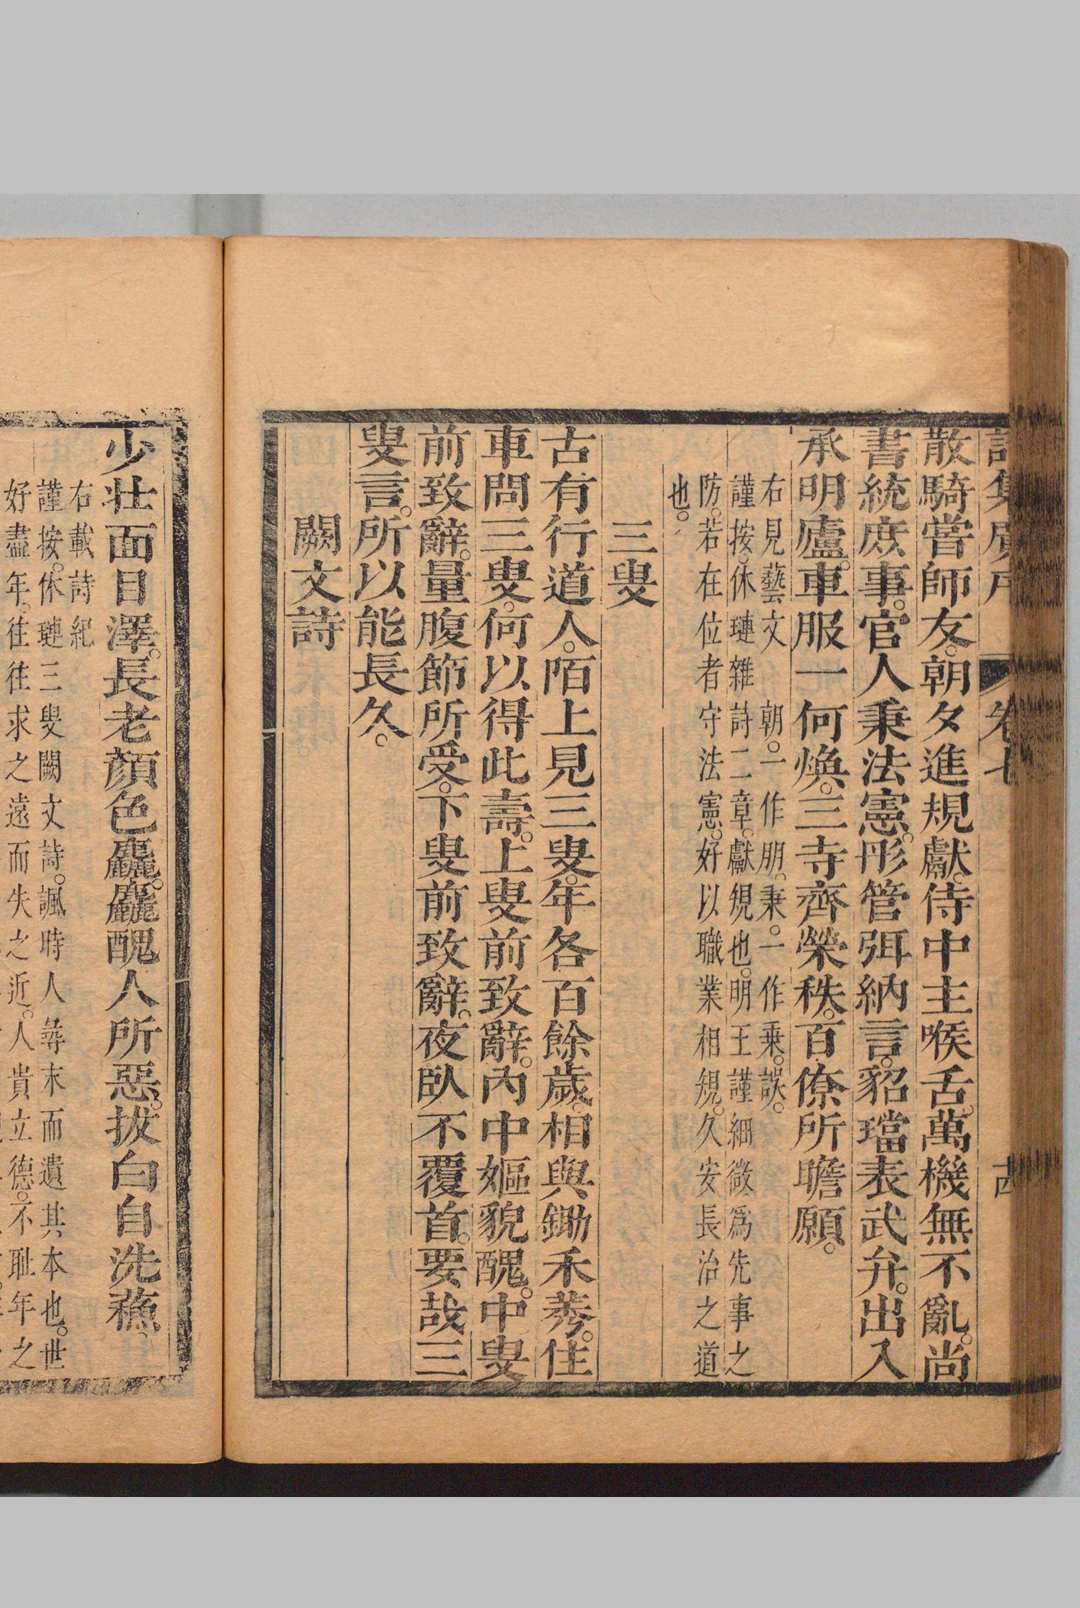 詩集廣序 卷七 十四
散騎嘗師友。朝夕進規獻。侍中主喉舌。萬機無不亂。尚
書統庶事。官人秉法憲。彤管弭納言。貂璫表武弁。出入
承明廬。車服一何煥。三寺齊榮秩。百僚所瞻願。
右見藝文 朝。一作朋。秉。一作乗。誤。
謹按。休璉雜詩二章。獻規也。明王謹細微為先事之
防。若在位者守法憲。好以職業相規。久安長治之道
也。
三叟
古有行道人。陌上見三叟。年各百餘歲。相與鋤禾莠。住
車問三叟。何以得此壽。上叟前致辭。內中嫗貌醜。中叟
前致辭。量腹節所受。下叟前致辭。夜臥不覆首。要哉三
叟言。所以能長久。
闕文詩
少壮面目澤。長老顏色麤。麤醜人所惡。拔白自洗蘓。
右載詩紀
謹按。休璉三叟闕文詩。諷時人尋末而遺其本也。世
好盡年。往往求之遠而失之近。人貴立德。不耻年之